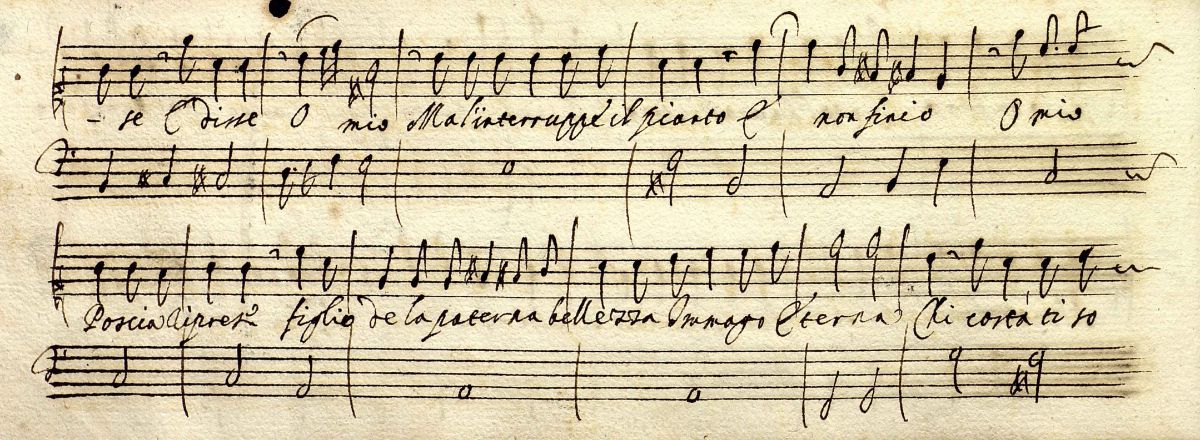 - se E disse O mio Ma l'interruppe il pianto E non finio O mio
Poscia Ripres figlio de la paterna bellezza Immago Eterna Chi costà ti so